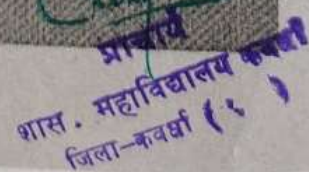 प्राचार्य
शास. महाविद्यालय कवर्धा
जिला-कवर्धा ( )